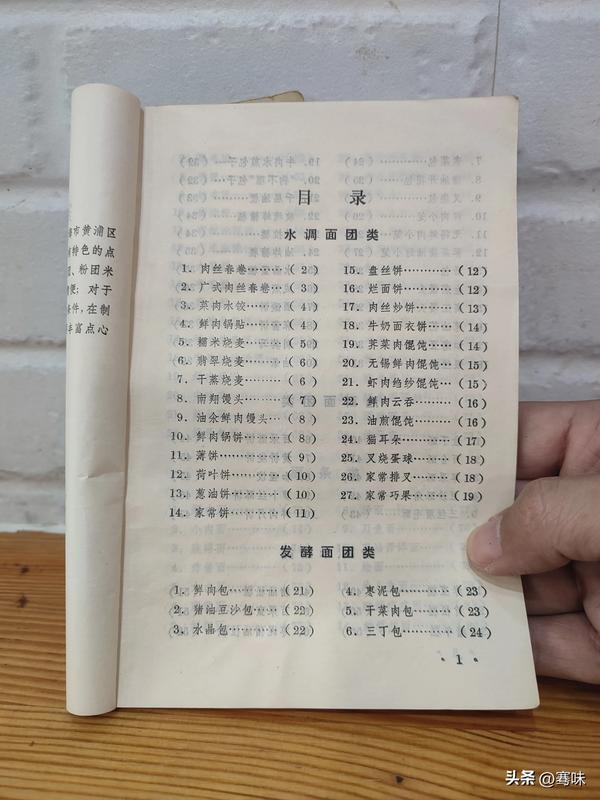 市黄浦区
特色的点
、粉团米
便；对于
件，在制
丰富点心
目 录
水调面团类
1．肉丝春卷……（2）
2．广式肉丝春卷…（3）
3．菜肉水饺………（4）
4．鲜肉锅贴………（4）
5．糯米烧麦………（5）
6．翡翠烧麦………（6）
7．干蒸烧麦………（6）
8．南翔馒头………（7）
9．油汆鲜肉馒头…（8）
10．鲜肉锅饼………（8）
11．薄饼…………（9）
12．荷叶饼………（10）
13．葱油饼………（10）
14．家常饼………（11）
15．盘丝饼…………（12）
16．烂面饼…………（12）
17．肉丝炒饼………（13）
18．牛奶面衣饼……（14）
19．荠菜肉馄饨……（14）
20．无锡鲜肉馄饨…（15）
21．虾肉绉纱馄饨…（15）
22．鲜肉云吞………（16）
23．油煎馄饨………（16）
24．猫耳朵…………（17）
25．叉烧蛋球………（18）
26．家常排叉………（18）
27．家常巧果………（19）
发酵面团类
1．鲜肉包…………（21）
2．猪油豆沙包……（22）
3．水晶包…………（22）
4．枣泥包…………（23）
5．干菜肉包………（23）
6．三丁包…………（24）
·1·
头条 @骞味